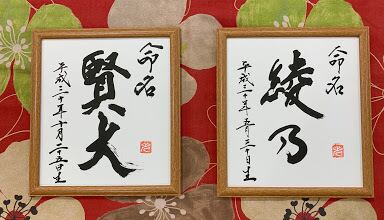 命名
賢大
平成三十年十月二十五日生
命名
綾乃
平成三十年五月三十日生